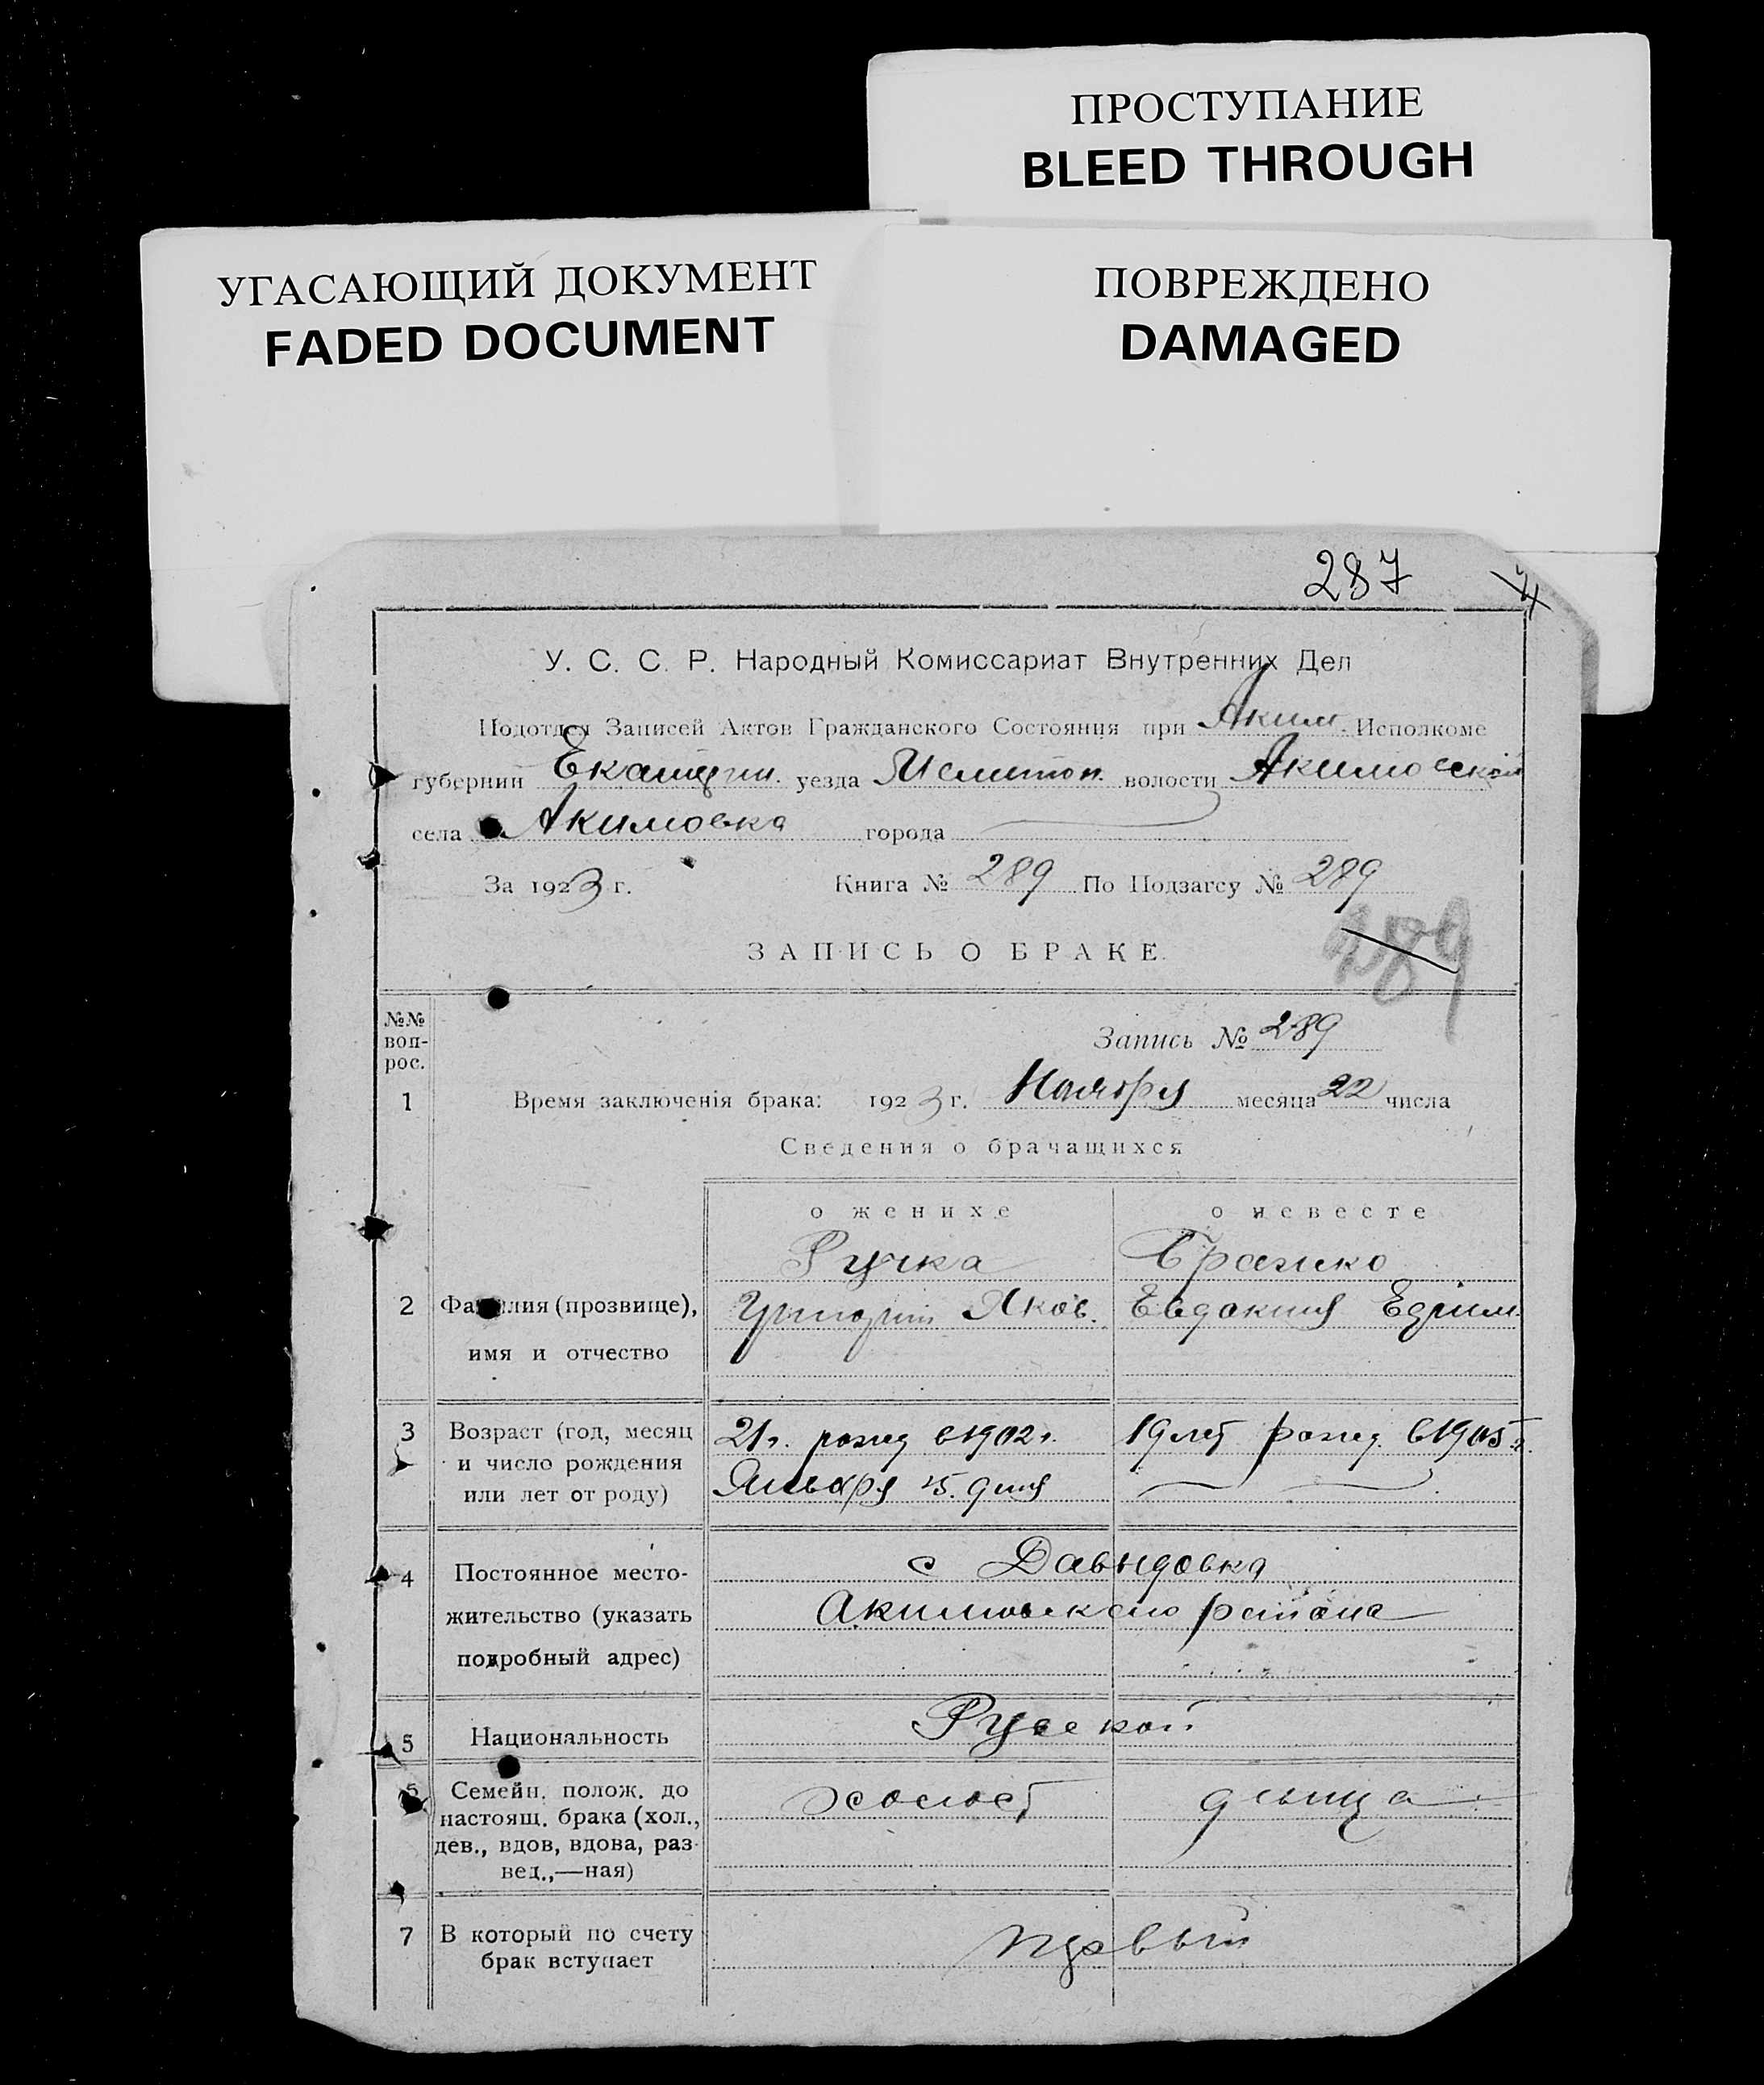 ПРОСТУПАНИЕ
BLEED THROUGH
УГАСАЮЩИЙ ДОКУМЕНТ
FADED DOCUMENT
ПОВРЕЖДЕНО
DAMAGED
287
У. С. С. Р. Народный Комиссариат Внутренних Дел
Подотдел Записей Актов Гражданского Состояния при Аким. Исполкоме
губернии Екатерин. уезда Мелитоп. волости Акимовской
села Акимовка города
За 1923 г. Книга № 289 По Подзагсу № 289
289
ЗАПИСЬ О БРАКЕ.
№№ воп-рос.
Запись № 289
1 Время заключенія брака: 1923 г. Ноября месяца 22 числа
Сведения о брачащихся
о женихе о невесте
Ручка Бражко
2 Фамилия (прозвище), Григорий Яков. Евдокия Ефим.
имя и отчество
3 Возраст (год, месяц 21 г. рожд в 1902 г. 19 лет рожд. в 1905 г.
и число рождения Января 25. дня
или лет от роду)
4 Постоянное место- с Давыдовка
жительство (указать Акимовского района
подробный адрес)
5 Национальность Руской
6 Семейн. полож. до холост
настоящ. брака (хол.,
дев., вдов, вдова, раз-
вед.,—ная)
7 В который по счету первый
брак вступает